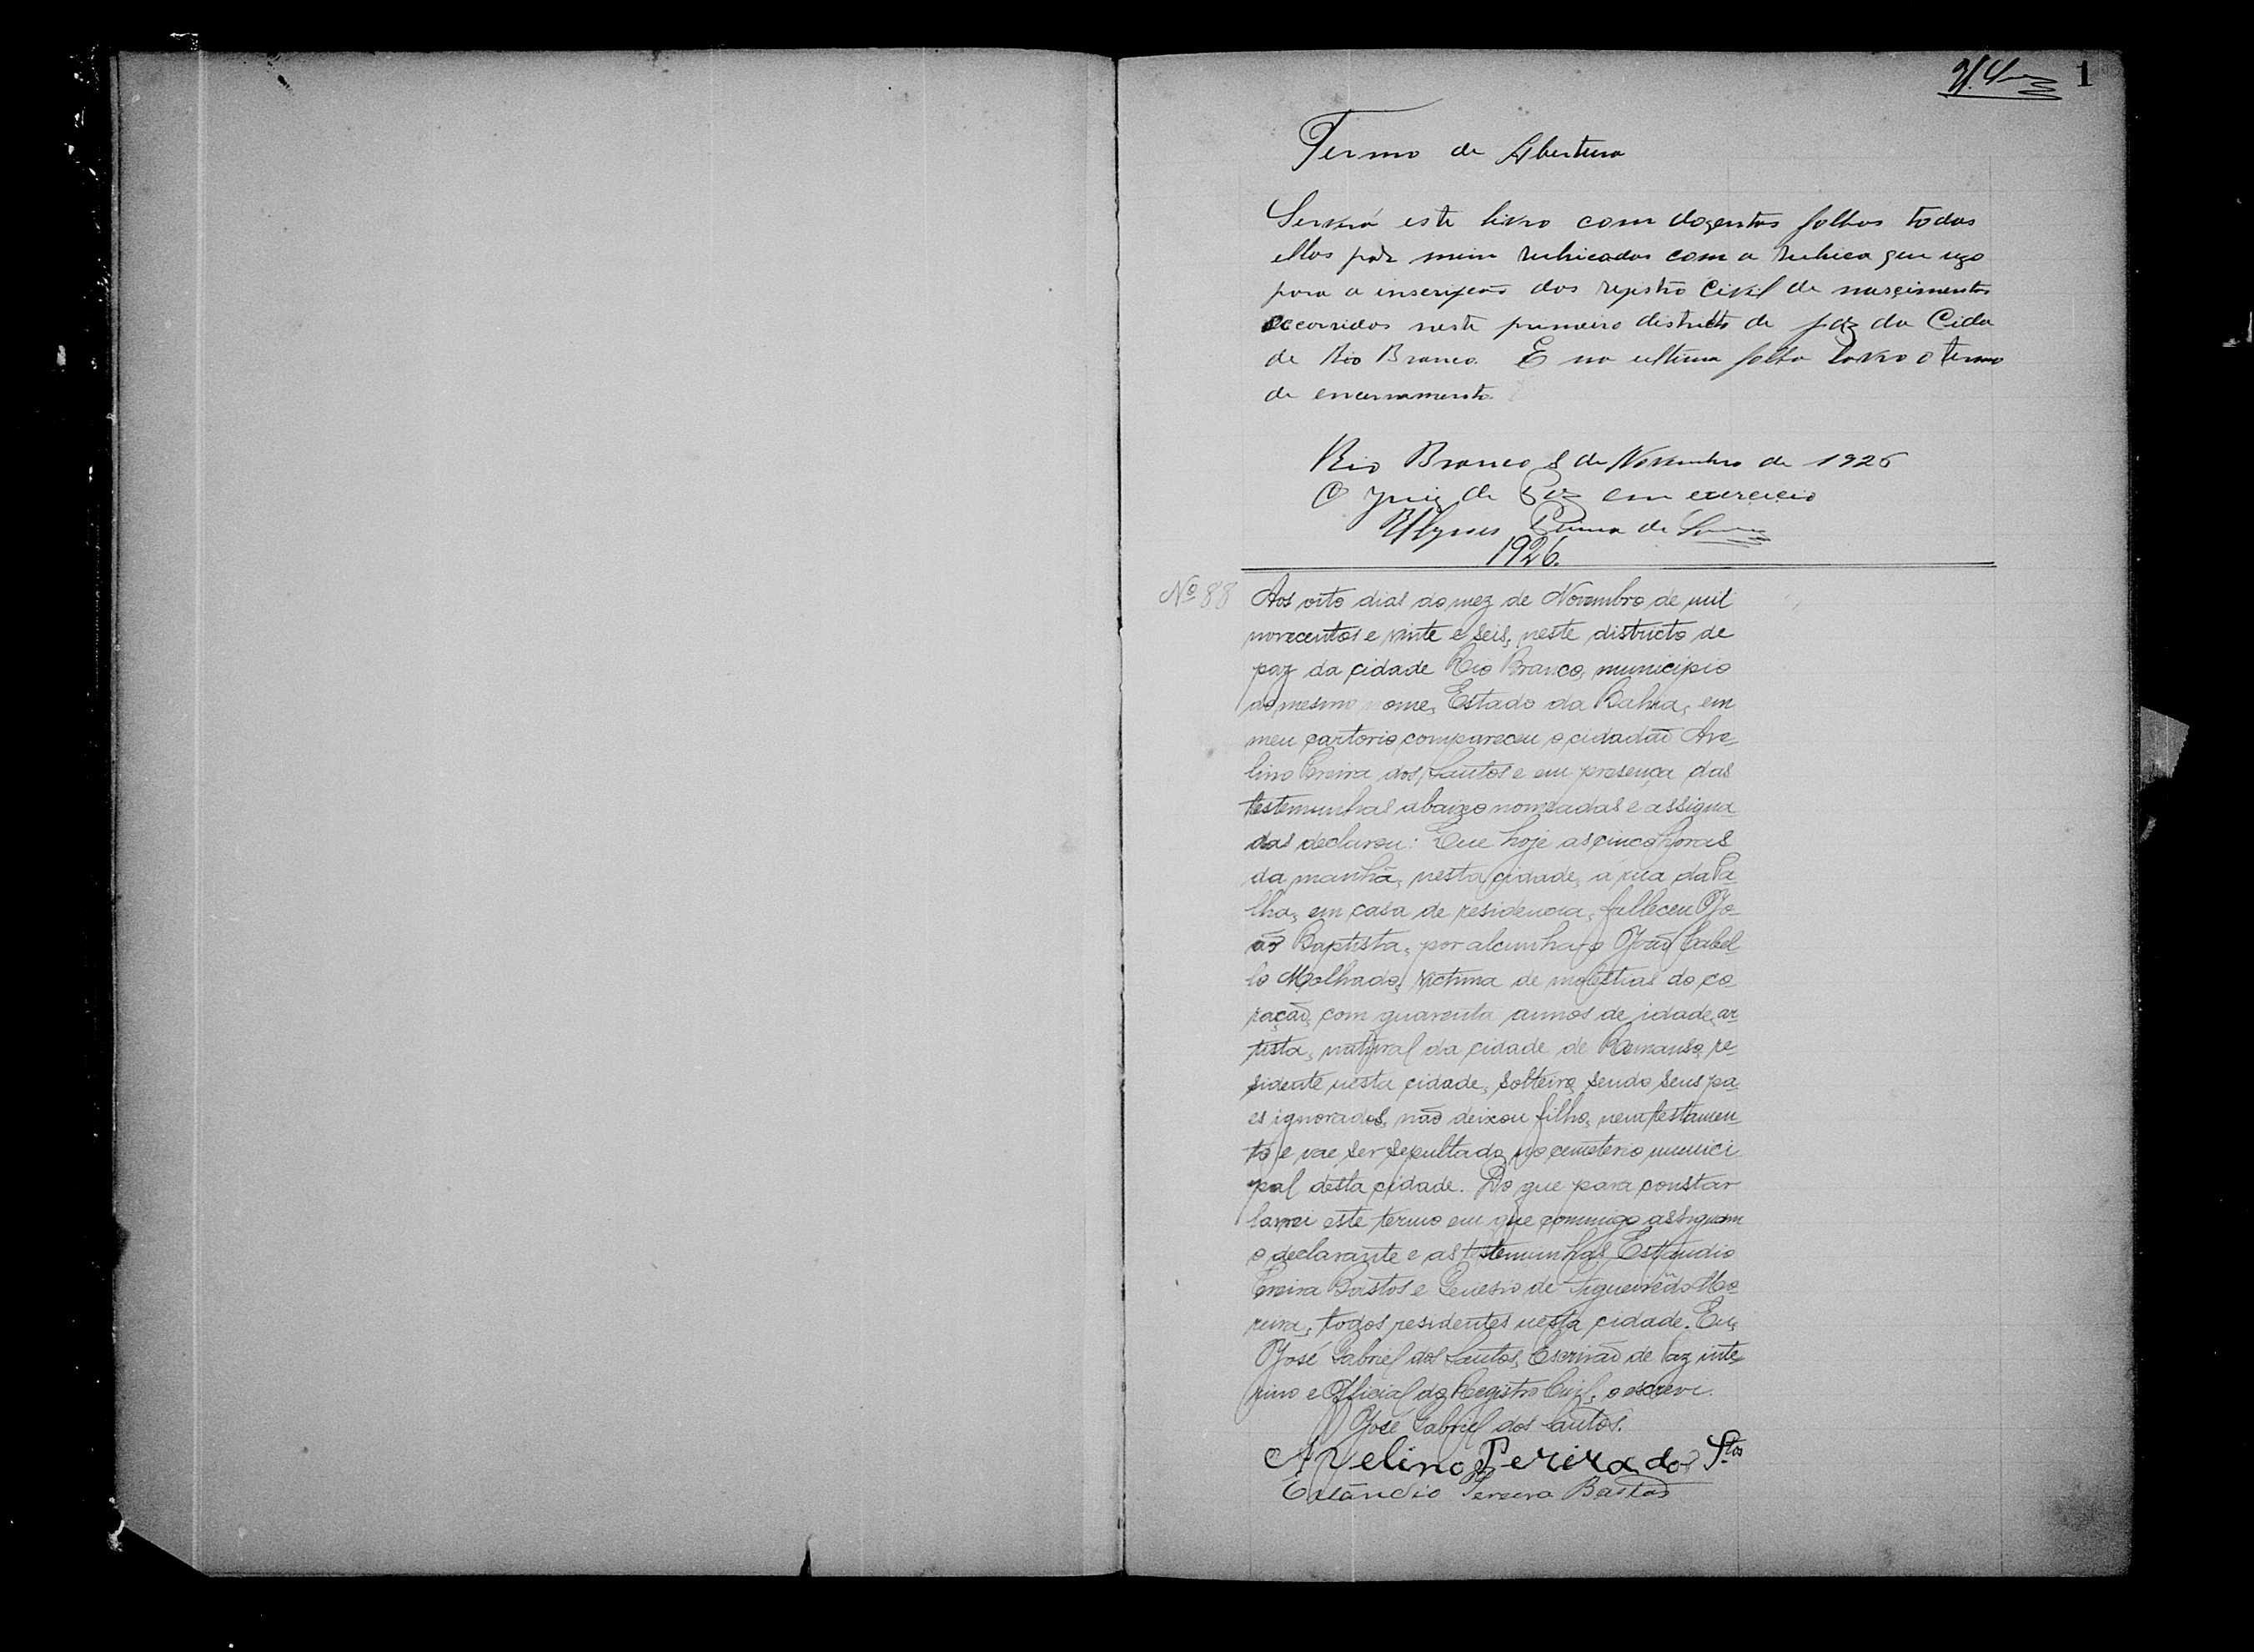 1
Termo de Abertura
Servirá este livro com dozentas folhas todas
ellas por mim rubricadas com a rubrica que uzo
para a inscripção dos registro Civil de nascimentos
occorridos neste primeiro districto de paz da Cida
de Rio Branco. E na ultima folha lavro o termo
de encerramento.
Rio Branco 8 de Novembro de 1926
O Juiz de Paz em exercicio
Ulysses de Souza
1926.
Nº 88 Aos oito dias do mez de Novembro de mil
novecentos e vinte e seis, neste districto de
paz da cidade Rio Branco, municipio
do mesmo nome, Estado da Bahia, em
meu cartorio compareceu o cidadão Ave-
lino Pereira dos Santos e em presença das
testemunhas abaixo nomeadas e assigna
das declarou: Que hoje as cinco horas
da manhã, nesta cidade, á rua da Pa-
lha, em casa de residencia, falleceu Jo-
ão Baptista, por alcunha o João Cabel-
lo Molhado, victima de molestias do co-
ração, com quarenta annos de idade, ar-
tista, natural da cidade de Remanso, re-
sidente nesta cidade, solteiro, sendo seus pa-
es ignorados, não deixou filho, nem testamen-
to e vae ser sepultado no cemeterio munici
pal desta cidade. Do que para constar
lavrei este termo em que commigo assignam
o declarante e as testemunhas Estaudio
Pereira Bastos e Genesio de Figueirêdo Mo-
reira, todos residentes nesta cidade. Eu,
José Gabriel dos Santos, Escrivão de Paz inte-
rino e Official do Registro Civil, o escrevi.
José Gabriel dos Santos.
Avelino Pereira dos Stos
Pereira Bastos